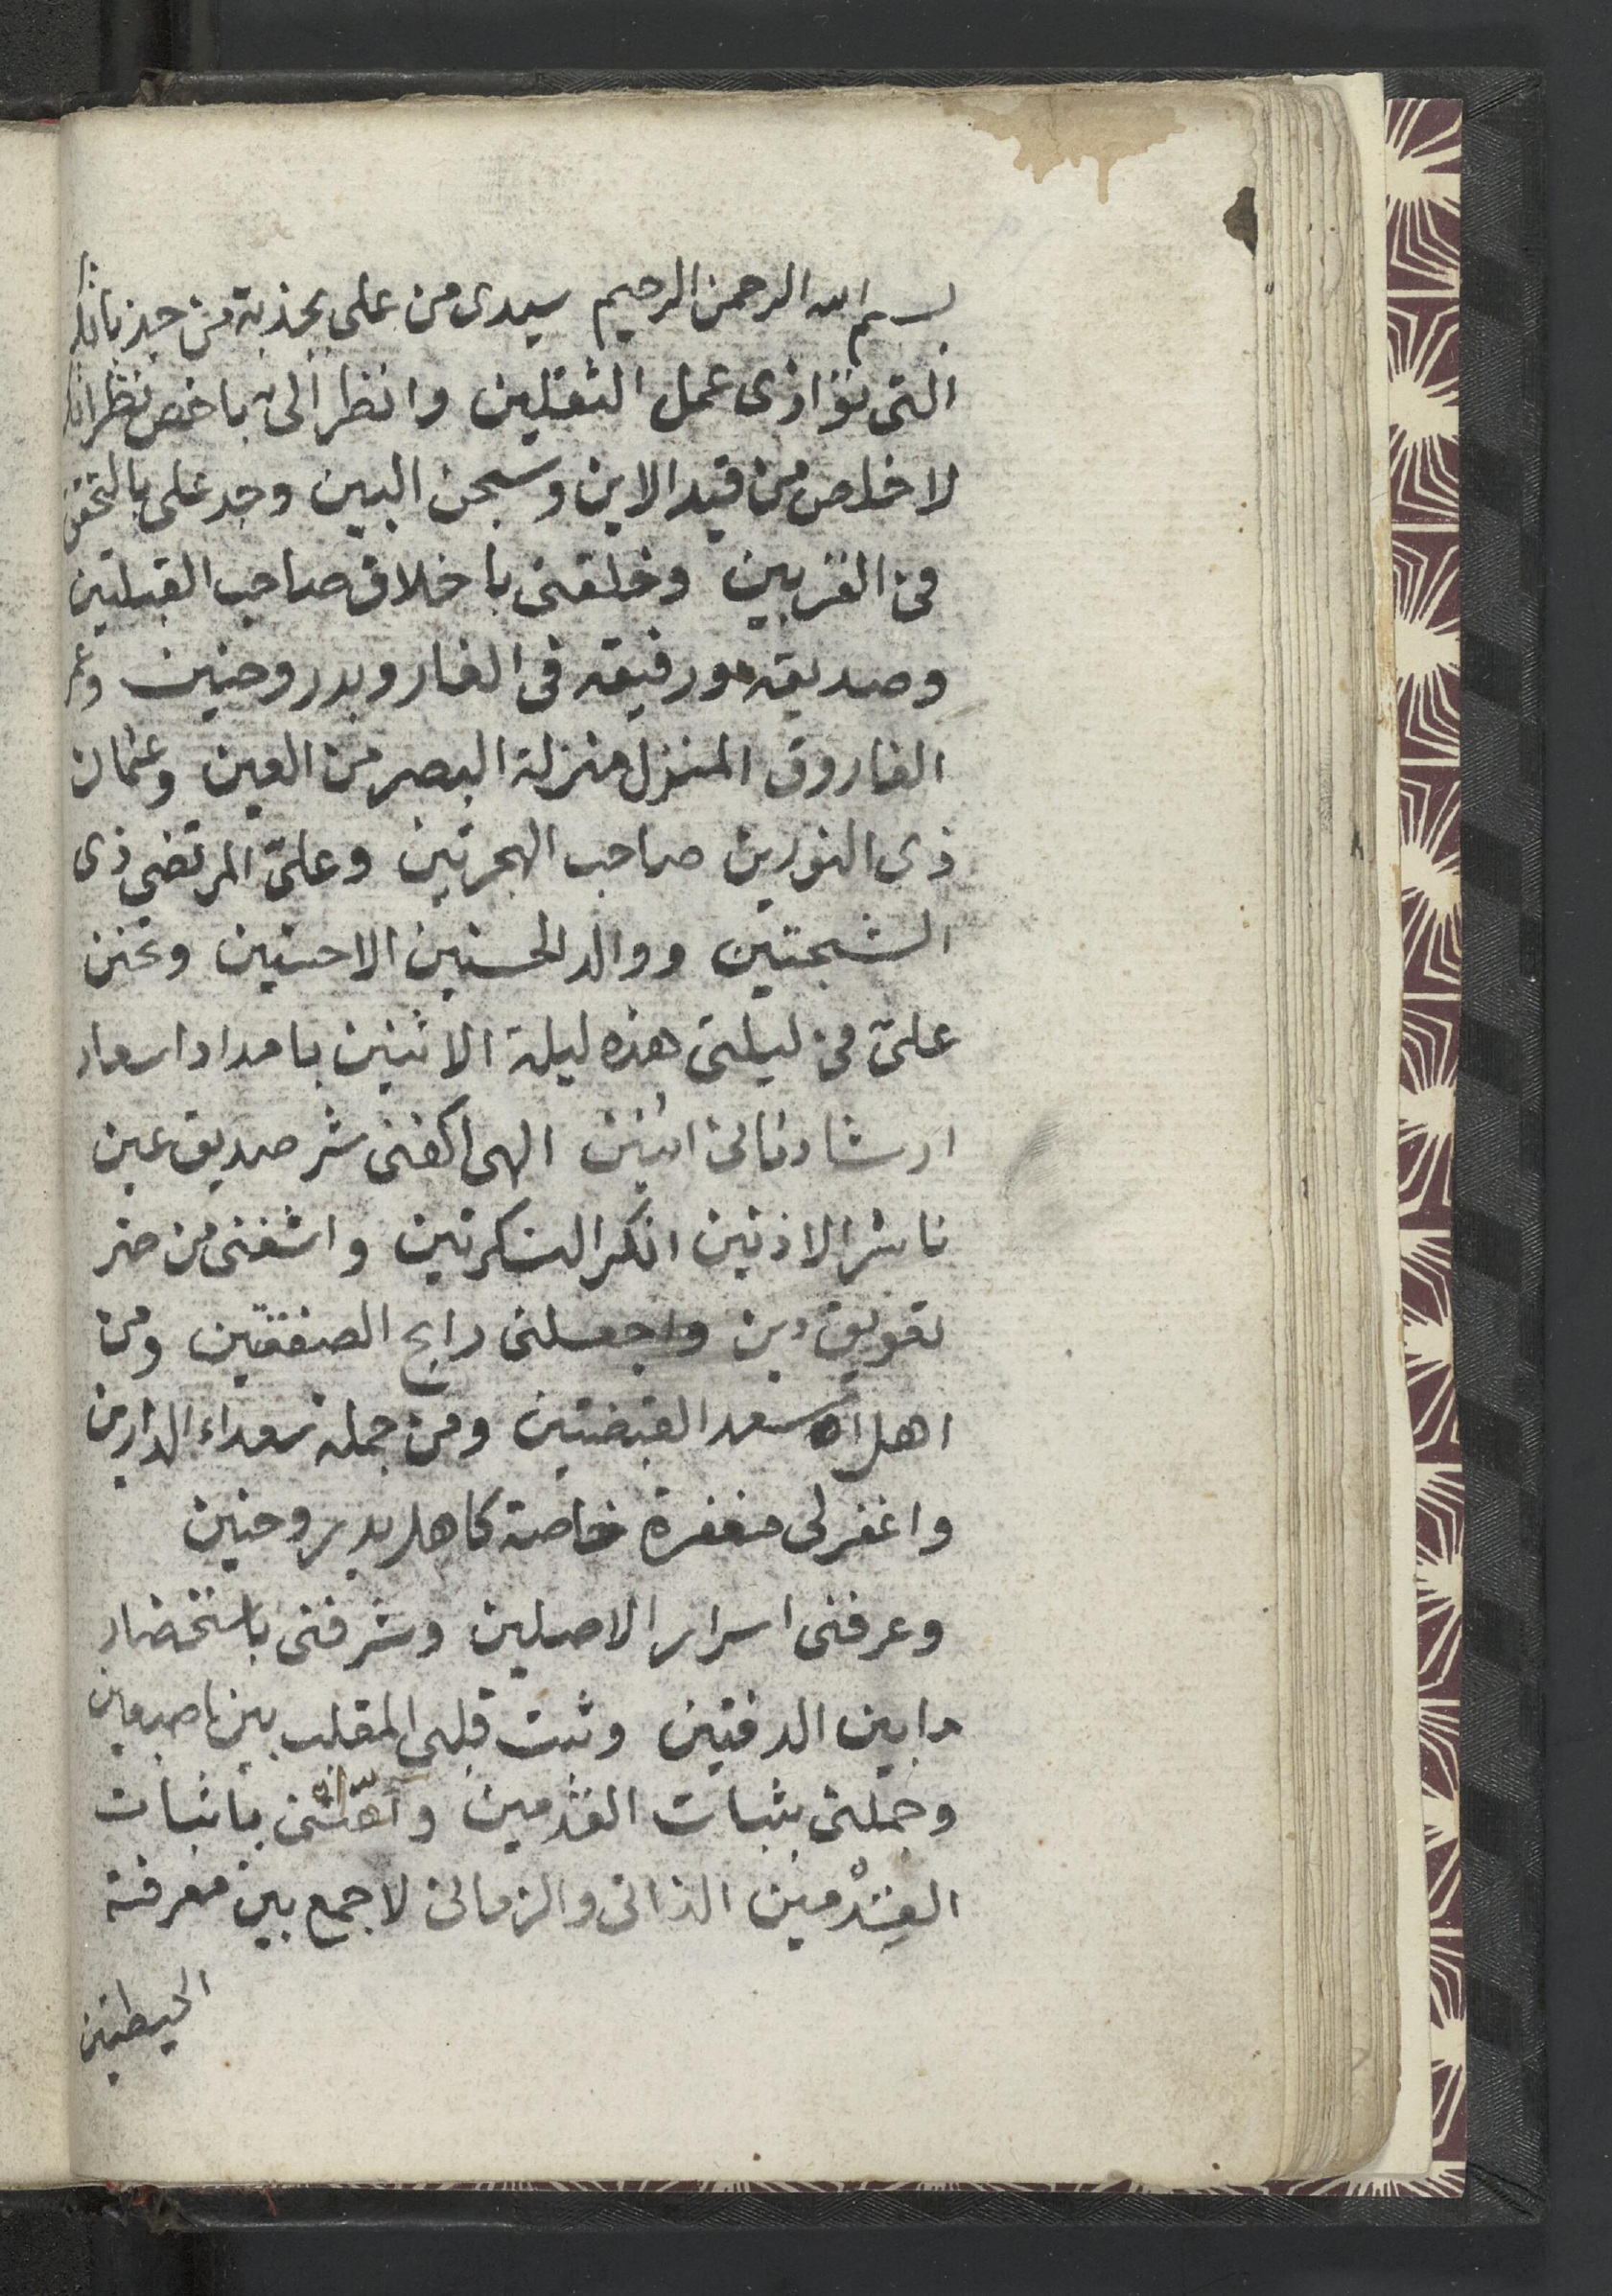 بسم الله الرحمن الرحيم سيدى من على بجذبة من جذباتك
التى توازى عمل الثقلين وانظر الى باخص نظراتك
لاخلص من قيد الاين وسجن البين وجد على بالتحقق
فى القربين وخلقنى باخلاق صاحب القبلتين
وصديقه ورفيقه فى الغار وبدر وحنين وعمر
الفاروق المنزل منزلة البصر من العين وعثمان
ذى النورين صاحب الهجرتين وعلىّ المرتضى ذى
الشجتين ووالد الحسنين الاحسنين وتحنن
علىّ فى ليلتى هذه ليلة الاثنين بامداد اسعاد
ارشاد الهى اكفنى شر صديق عين
ناشر الاذنين انكر المنكرتين واشفنى من ضر
تعويق دين واجعلنى رابح الصفقتين ومن
اهل اسعد القبضتين ومن جملة سعداء الدارين
واغفر لى مغفرة خاصة كاهل بدر وحنين
وعرفنى اسرار الاصلين وشرفنى باستحضار
مابين الدفتين وثبت قلبى المقلب بين اصبعين
وجملنى بثبات القدمين باثبات
القِدْمين الذاتى والزمانى لاجمع بين معرفة
الحيطتين